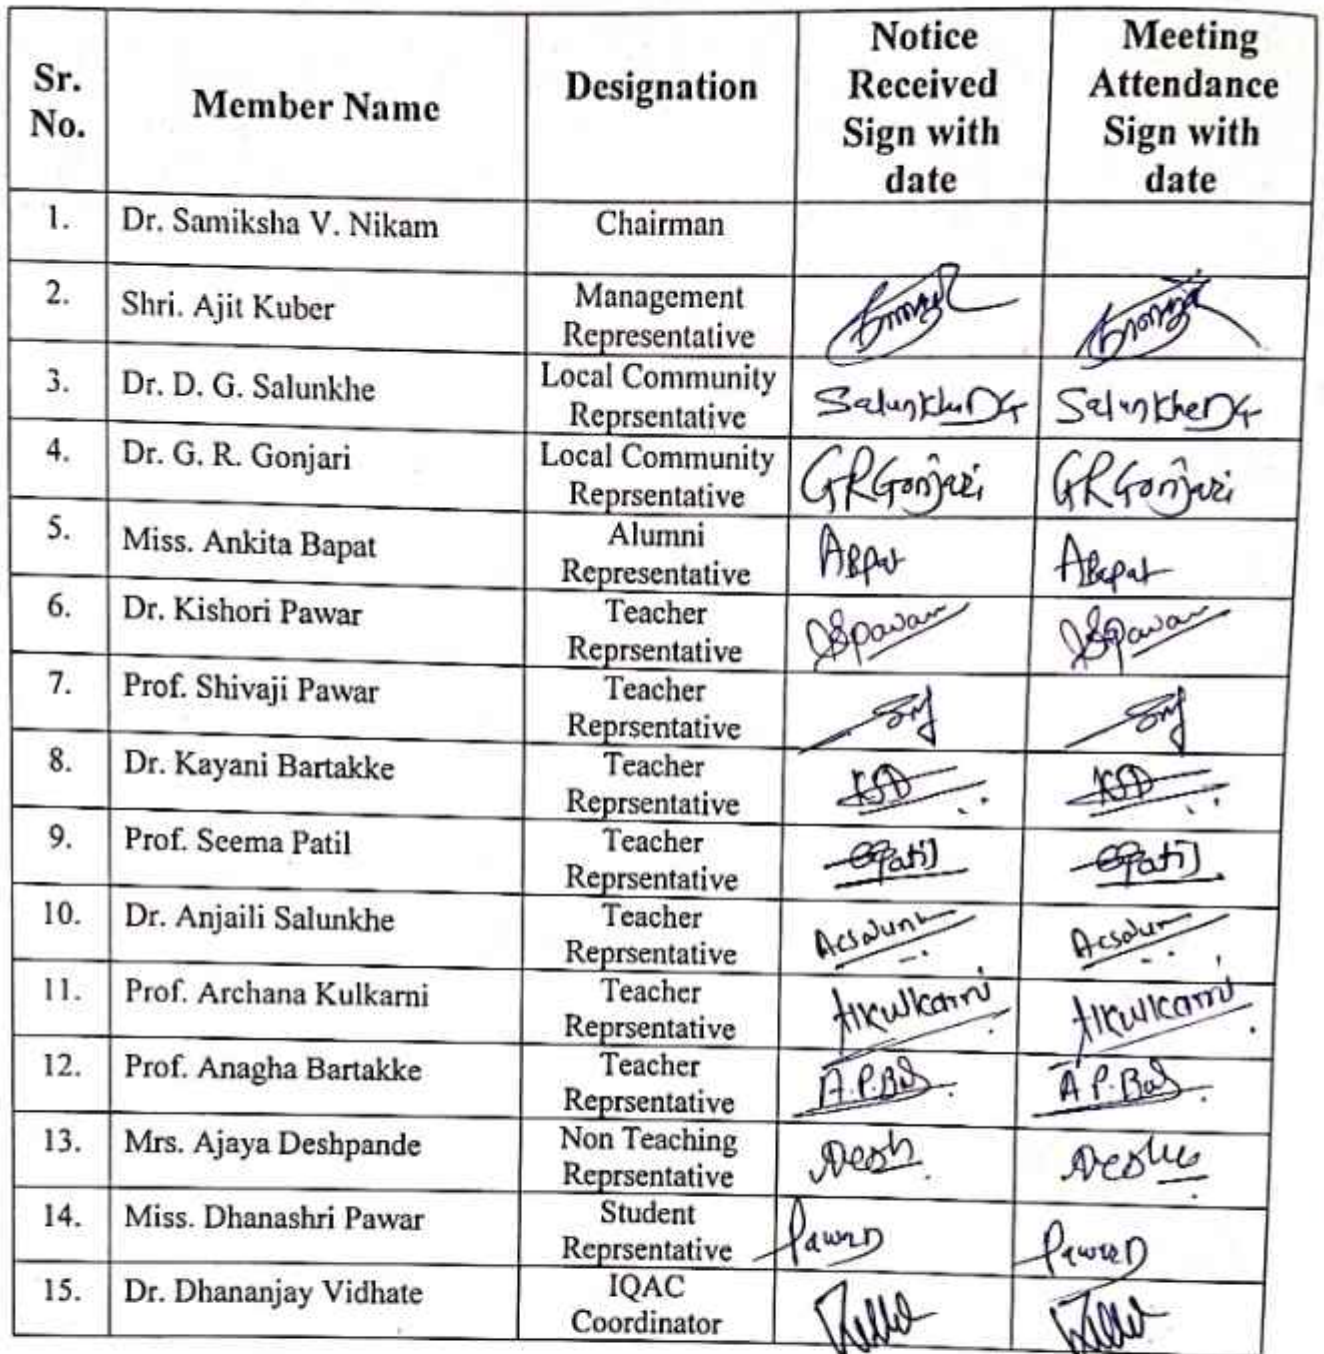 Sr. No.
Member Name
Designation
Notice Received Sign with date
Meeting Attendance Sign with date
1. Dr. Samiksha V. Nikam Chairman
2. Shri. Ajit Kuber Management Representative
3. Dr. D. G. Salunkhe Local Community Reprsentative SalunkheDG SalunkheDG
4. Dr. G. R. Gonjari Local Community Reprsentative GRGonjari GRGonjari
5. Miss. Ankita Bapat Alumni Representative Abapat
6. Dr. Kishori Pawar Teacher Reprsentative
7. Prof. Shivaji Pawar Teacher Reprsentative
8. Dr. Kayani Bartakke Teacher Reprsentative
9. Prof. Seema Patil Teacher Reprsentative
10. Dr. Anjaili Salunkhe Teacher Reprsentative
11. Prof. Archana Kulkarni Teacher Reprsentative AKulkarni AKulkarni
12. Prof. Anagha Bartakke Teacher Reprsentative
13. Mrs. Ajaya Deshpande Non Teaching Reprsentative
14. Miss. Dhanashri Pawar Student Reprsentative
15. Dr. Dhananjay Vidhate IQAC Coordinator